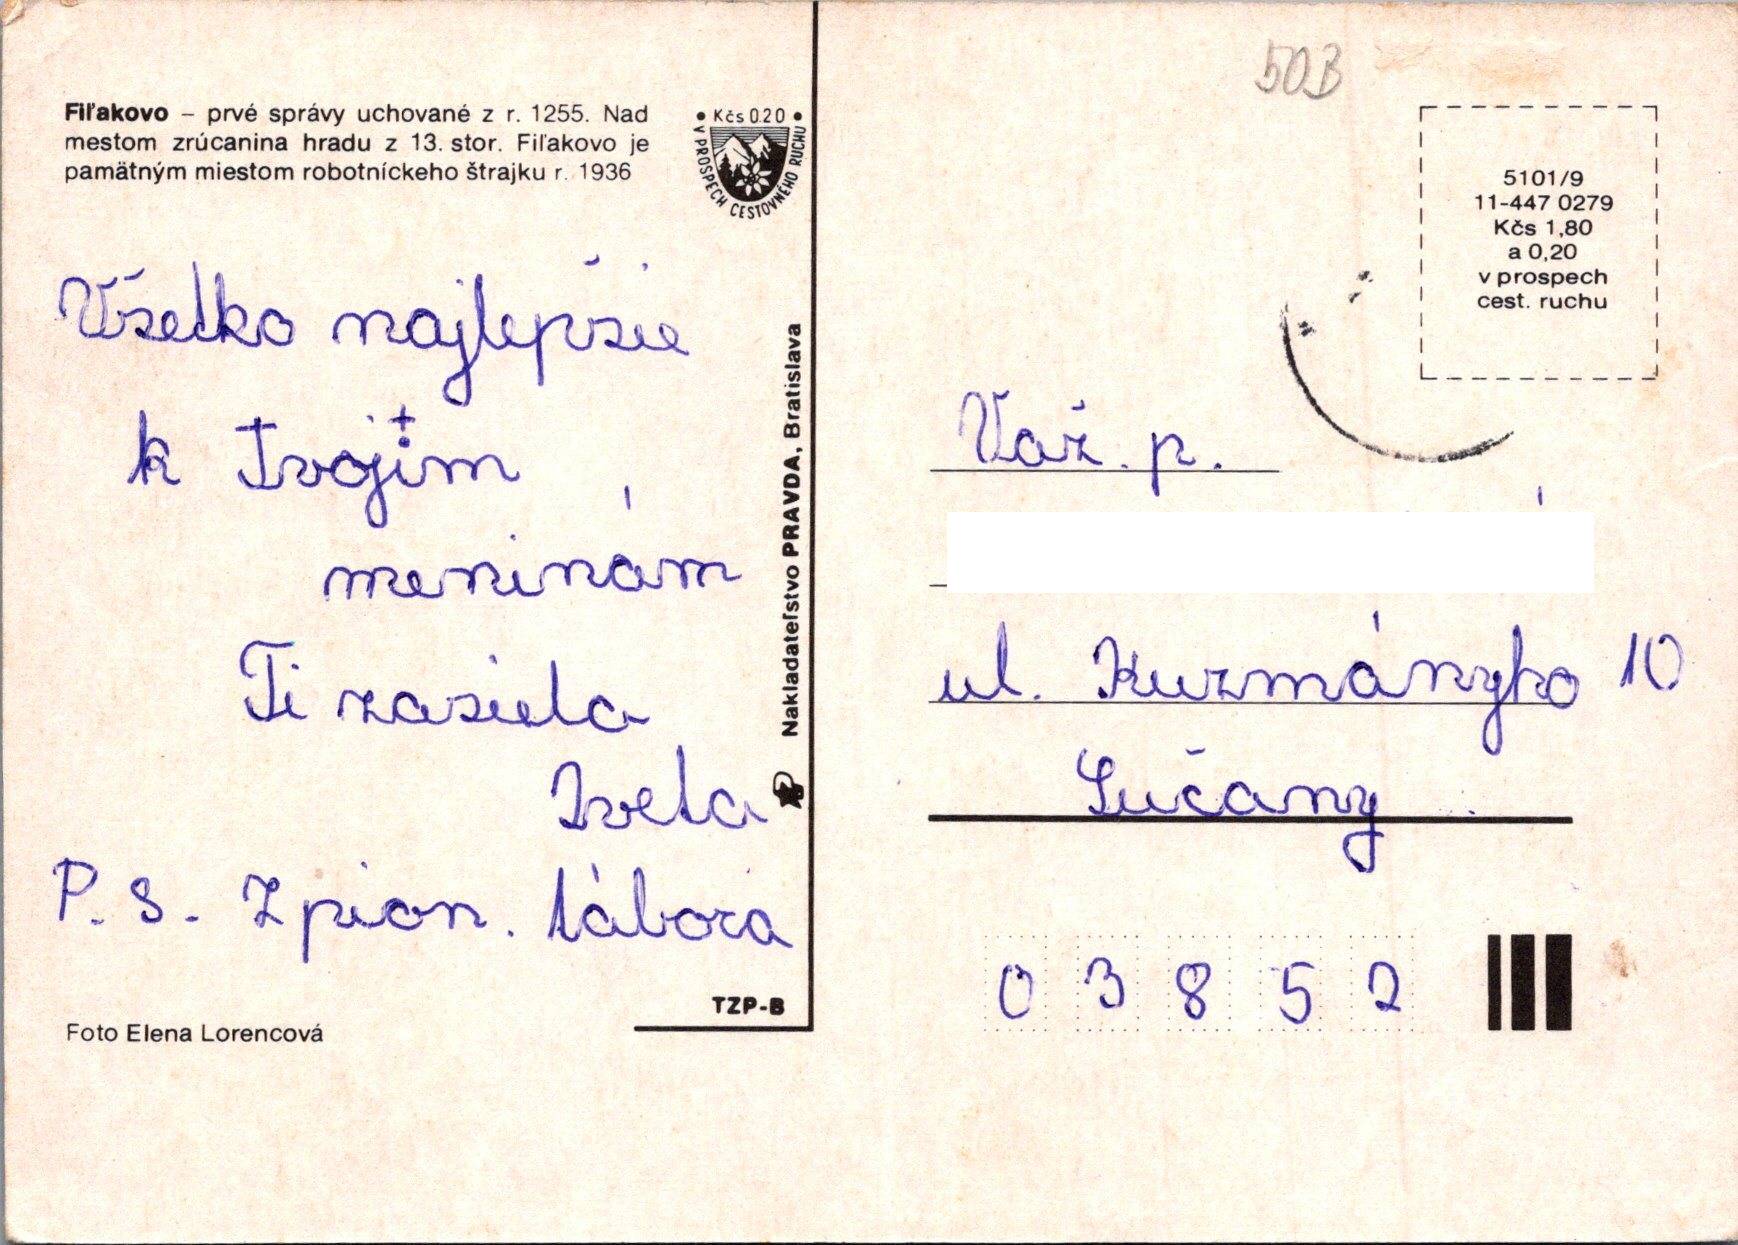 Fiľakovo – prvé správy uchované z r. 1255. Nad
mestom zrúcanina hradu z 13. stor. Fiľakovo je
pamätným miestom robotníckeho štrajku r. 1936
• Kčs 0.20 •
V PROSPECH CESTOVNÉHO RUCHU
Všetko najlepšie
k Tvojim
meninám
Ti zasiela
Iveta
P. S. Z pion. tábora
Foto Elena Lorencová
TZP-B
Nakladateľstvo PRAVDA, Bratislava
50B
5101/9
11-447 0279
Kčs 1,80
a 0,20
v prospech
cest. ruchu
Váž. p.
ul. Kuzmányho 10
Sučany
0 3 8 5 2